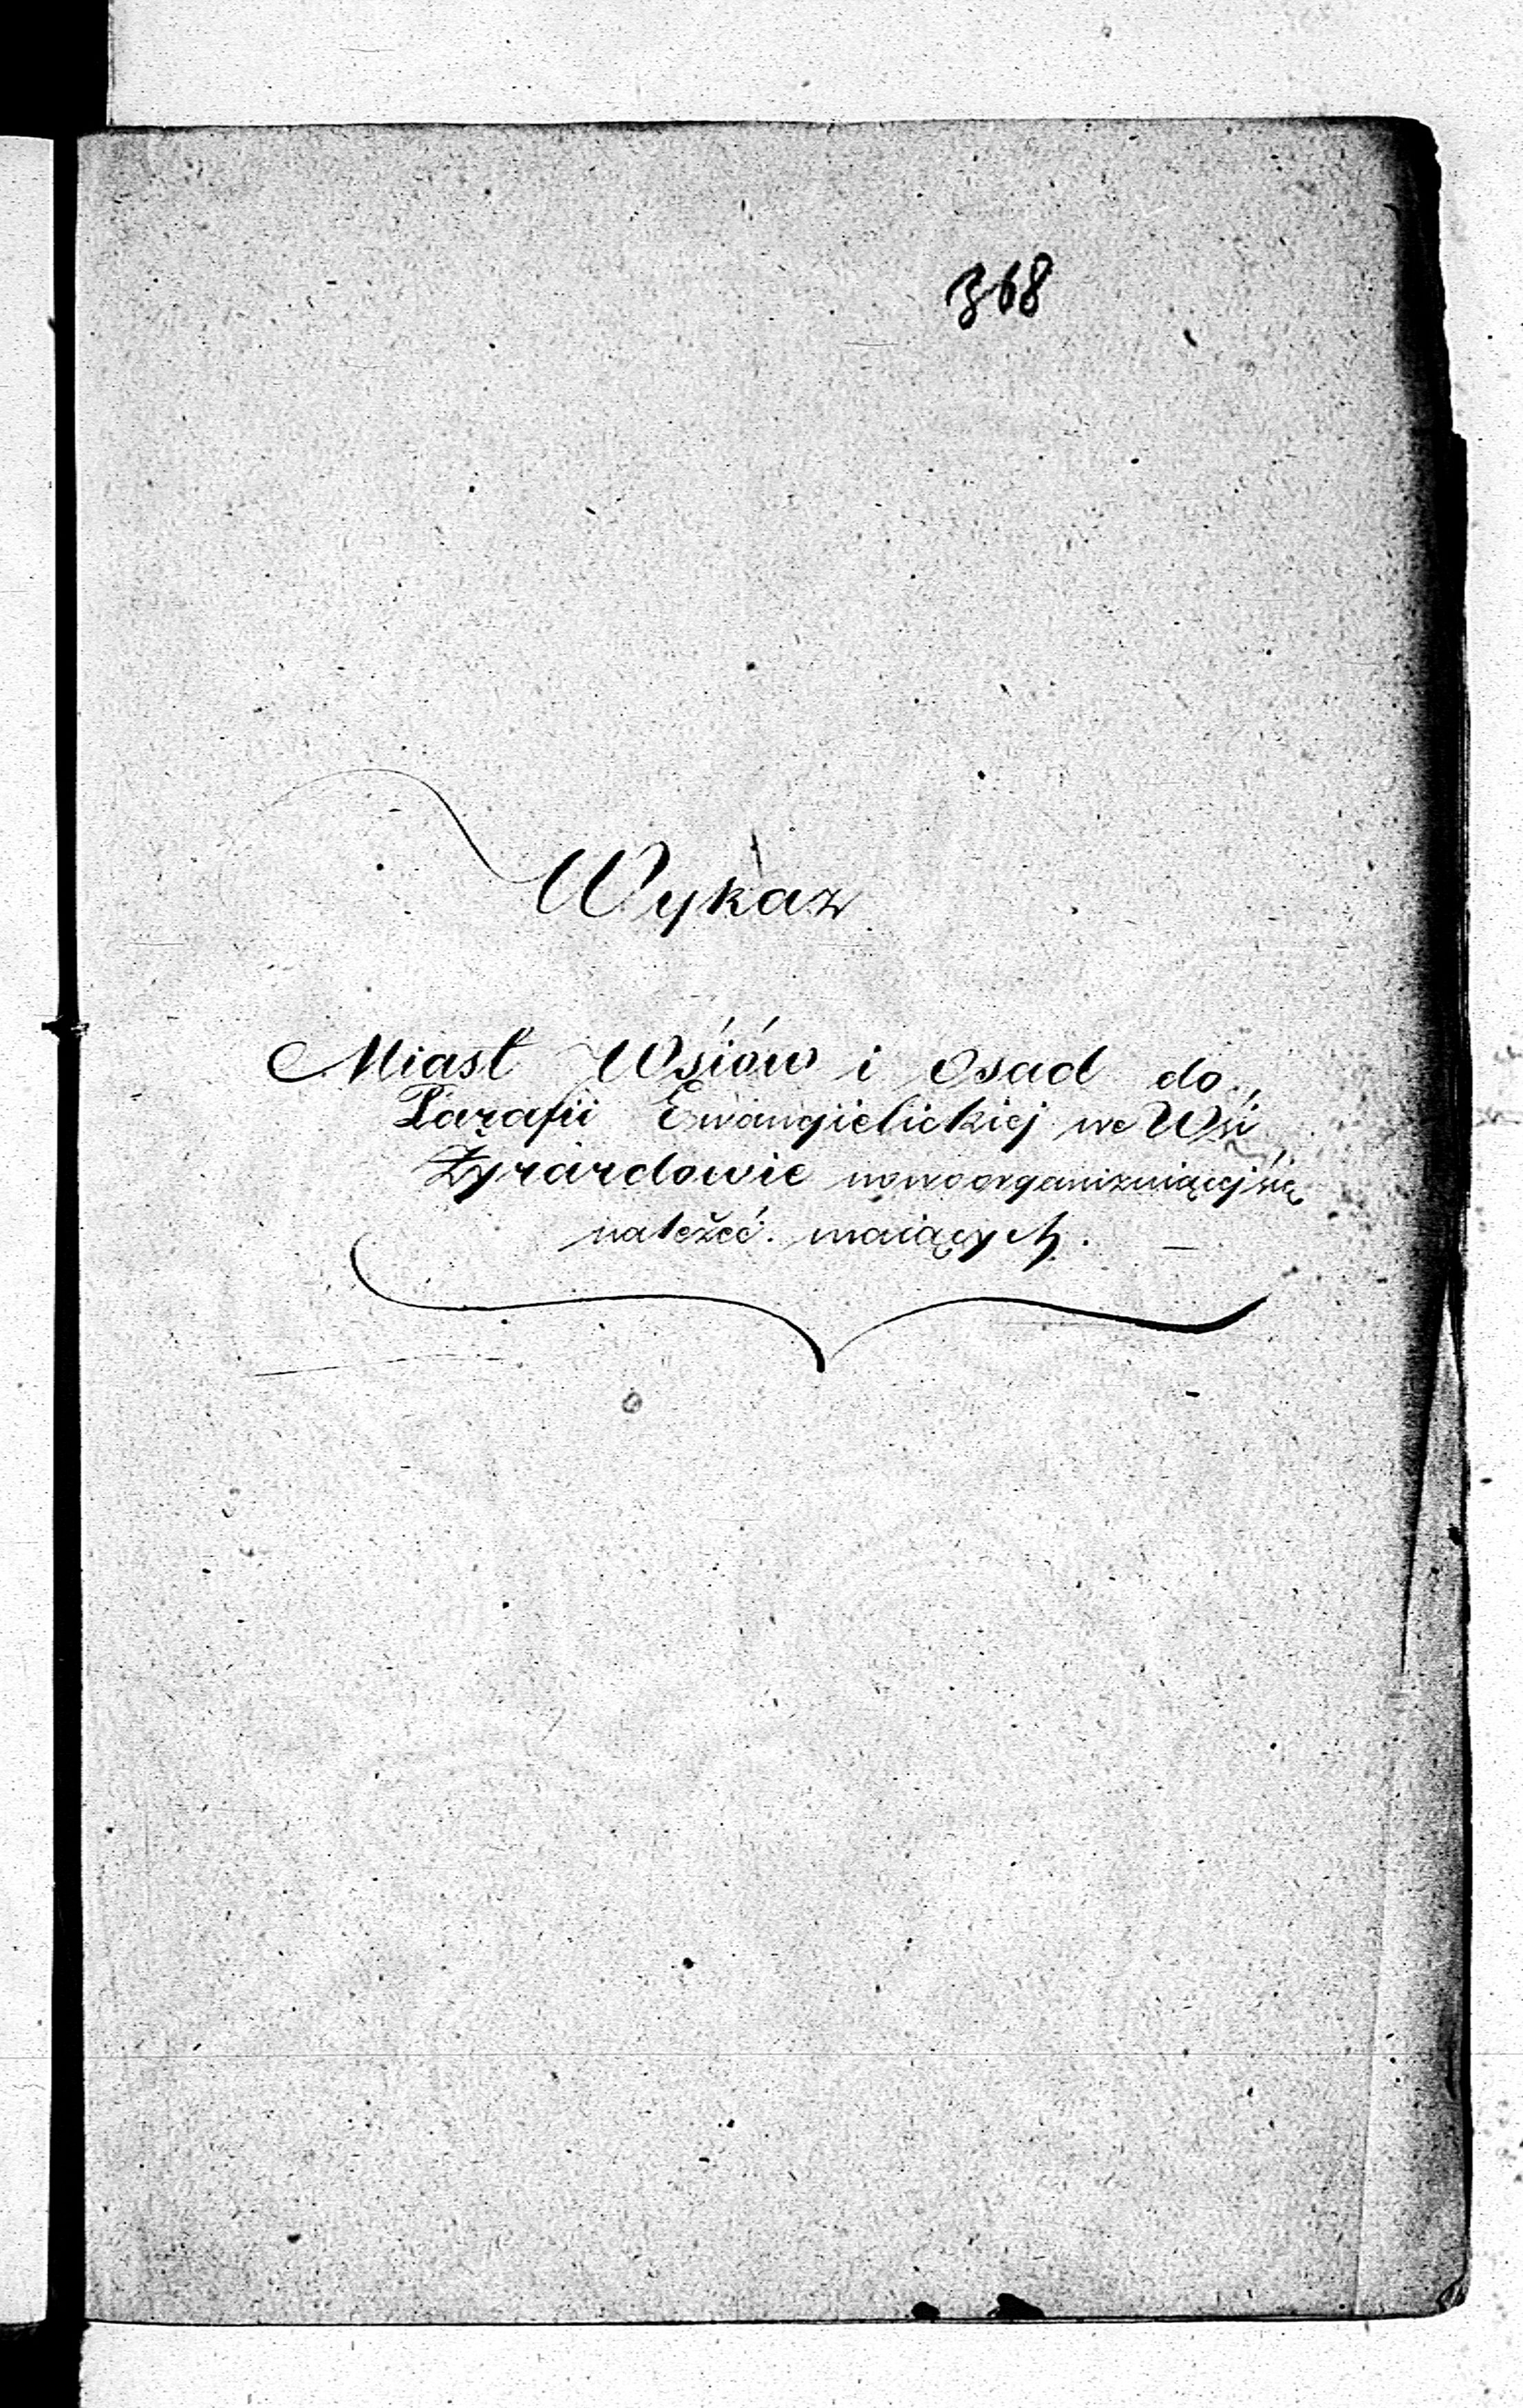 368
Wykaz
Miast Wsiów i Osad do
Parafii Ewangielickiej we Wsi
Żyrardowie nowoorganizuiącej się
należeć maiących.